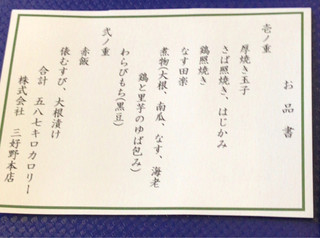 お品書
壱ノ重
厚焼き玉子
さば照焼き、はじかみ
鶏照焼き
なす田楽
煮物(大根、南瓜、なす、海老
鶏と里芋のゆば包み)
わらびもち(黒豆)
弐ノ重
赤飯
俵むすび、大根漬け
合計 五八七キロカロリー
株式会社 三好野本店